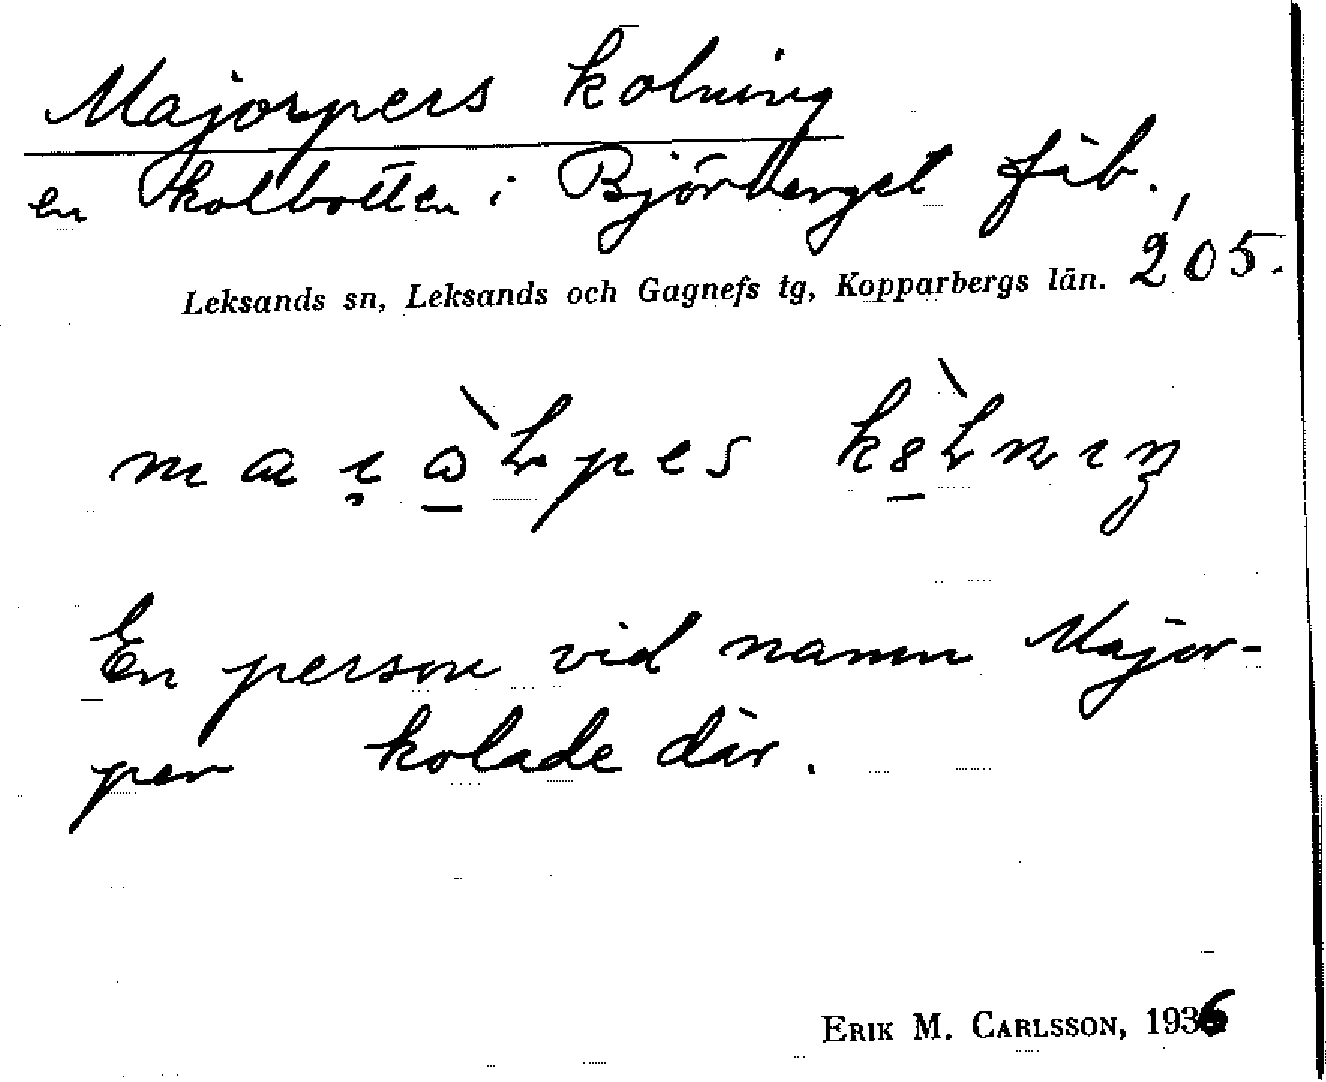 Majorpers kolning
en kolbotten i Björberget fäb.,
Leksands sn, Leksands och Gagnefs tg, Kopparbergs län. 205.
En person vid namn Major-
per kolade där.
ERIK M. CARLSSON, 1936